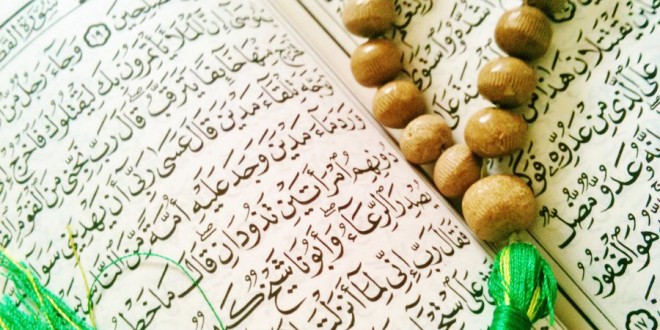 يَقْتَتِلَانِ هَٰذَا مِن
عَلَى ٱلَّذِى مِنْ عَدُوِّهِۦ فَوَكَزَ
إِنَّهُۥ عَدُوٌّ مُّضِلٌّ
هُوَ ٱلْغَفُورُ
١٧
سُورَةُ القَصَصِ
لِحِينَ ١٩ وَجَآءَ رَجُلٌ مِّنْ
يَٰمُوسَىٰٓ إِنَّ ٱلْمَلَأَ يَأْتَمِرُونَ بِكَ لِيَقْتُلُوكَ فَٱخْرُجْ
مِنْهَا خَآئِفًا يَتَرَقَّبُ ۖ قَالَ رَبِّ نَجِّنِى مِنَ ٱلْقَوْمِ
تِلْقَآءَ مَدْيَنَ قَالَ عَسَىٰ رَبِّىٓ أَن يَهْدِيَنِى سَوَ
وَرَدَ مَآءَ مَدْيَنَ وَجَدَ عَلَيْهِ أُمَّةً مِّنَ ٱلنَّاسِ
دُونِهِمُ ٱمْرَأَتَيْنِ تَذُودَانِ ۖ قَالَ مَا خَطْ
يُصْدِرَ ٱلرِّعَآءُ ۖ وَأَبُونَا شَيْخٌ كَ
فَقَالَ رَبِّ إِنِّى لِمَآ أَنزَلْتَ
عَلَى ٱسْتِحْيَا